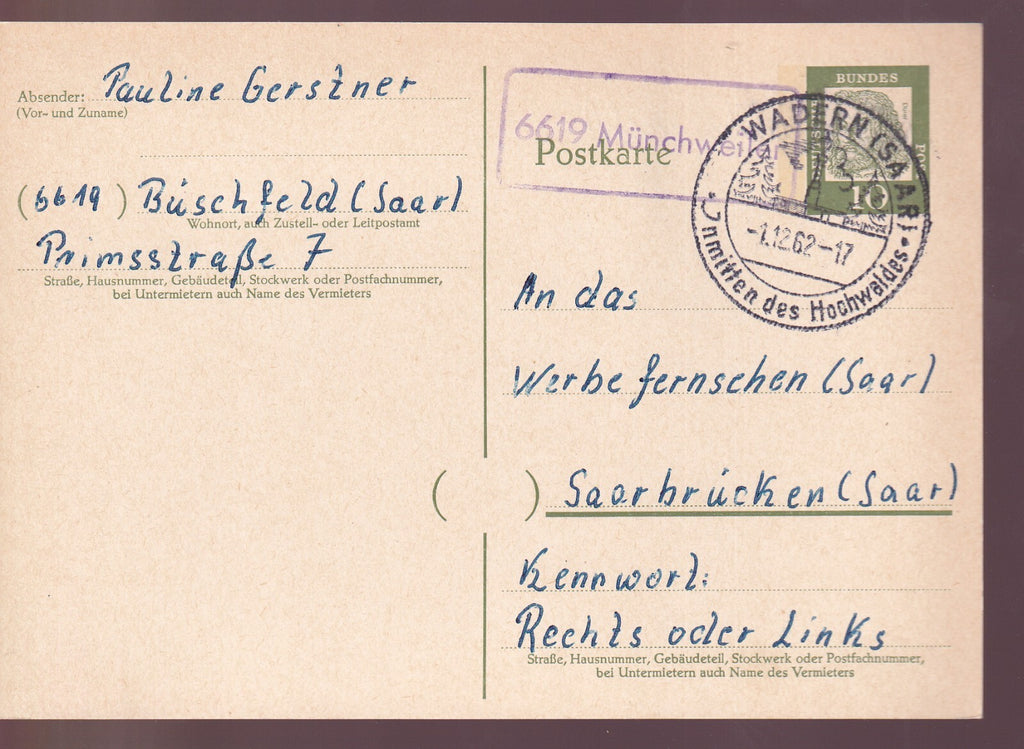 Absender: Pauline Gerstner
(Vor- und Zuname)
(6619) Büschfeld (Saar)
Wohnort, auch Zustell- oder Leitpostamt
Primsstraße 7
Straße, Hausnummer, Gebäudeteil, Stockwerk oder Postfachnummer,
bei Untermietern auch Name des Vermieters
6619 Münchweiler
Postkarte
BUNDES
10
WADERN (SAAR)
-1.12.62-17
Inmitten des Hochwaldes
An das
Werbefernsehen (Saar)
( ) Saarbrücken (Saar)
Kennwort:
Rechts oder Links
Straße, Hausnummer, Gebäudeteil, Stockwerk oder Postfachnummer,
bei Untermietern auch Name des Vermieters